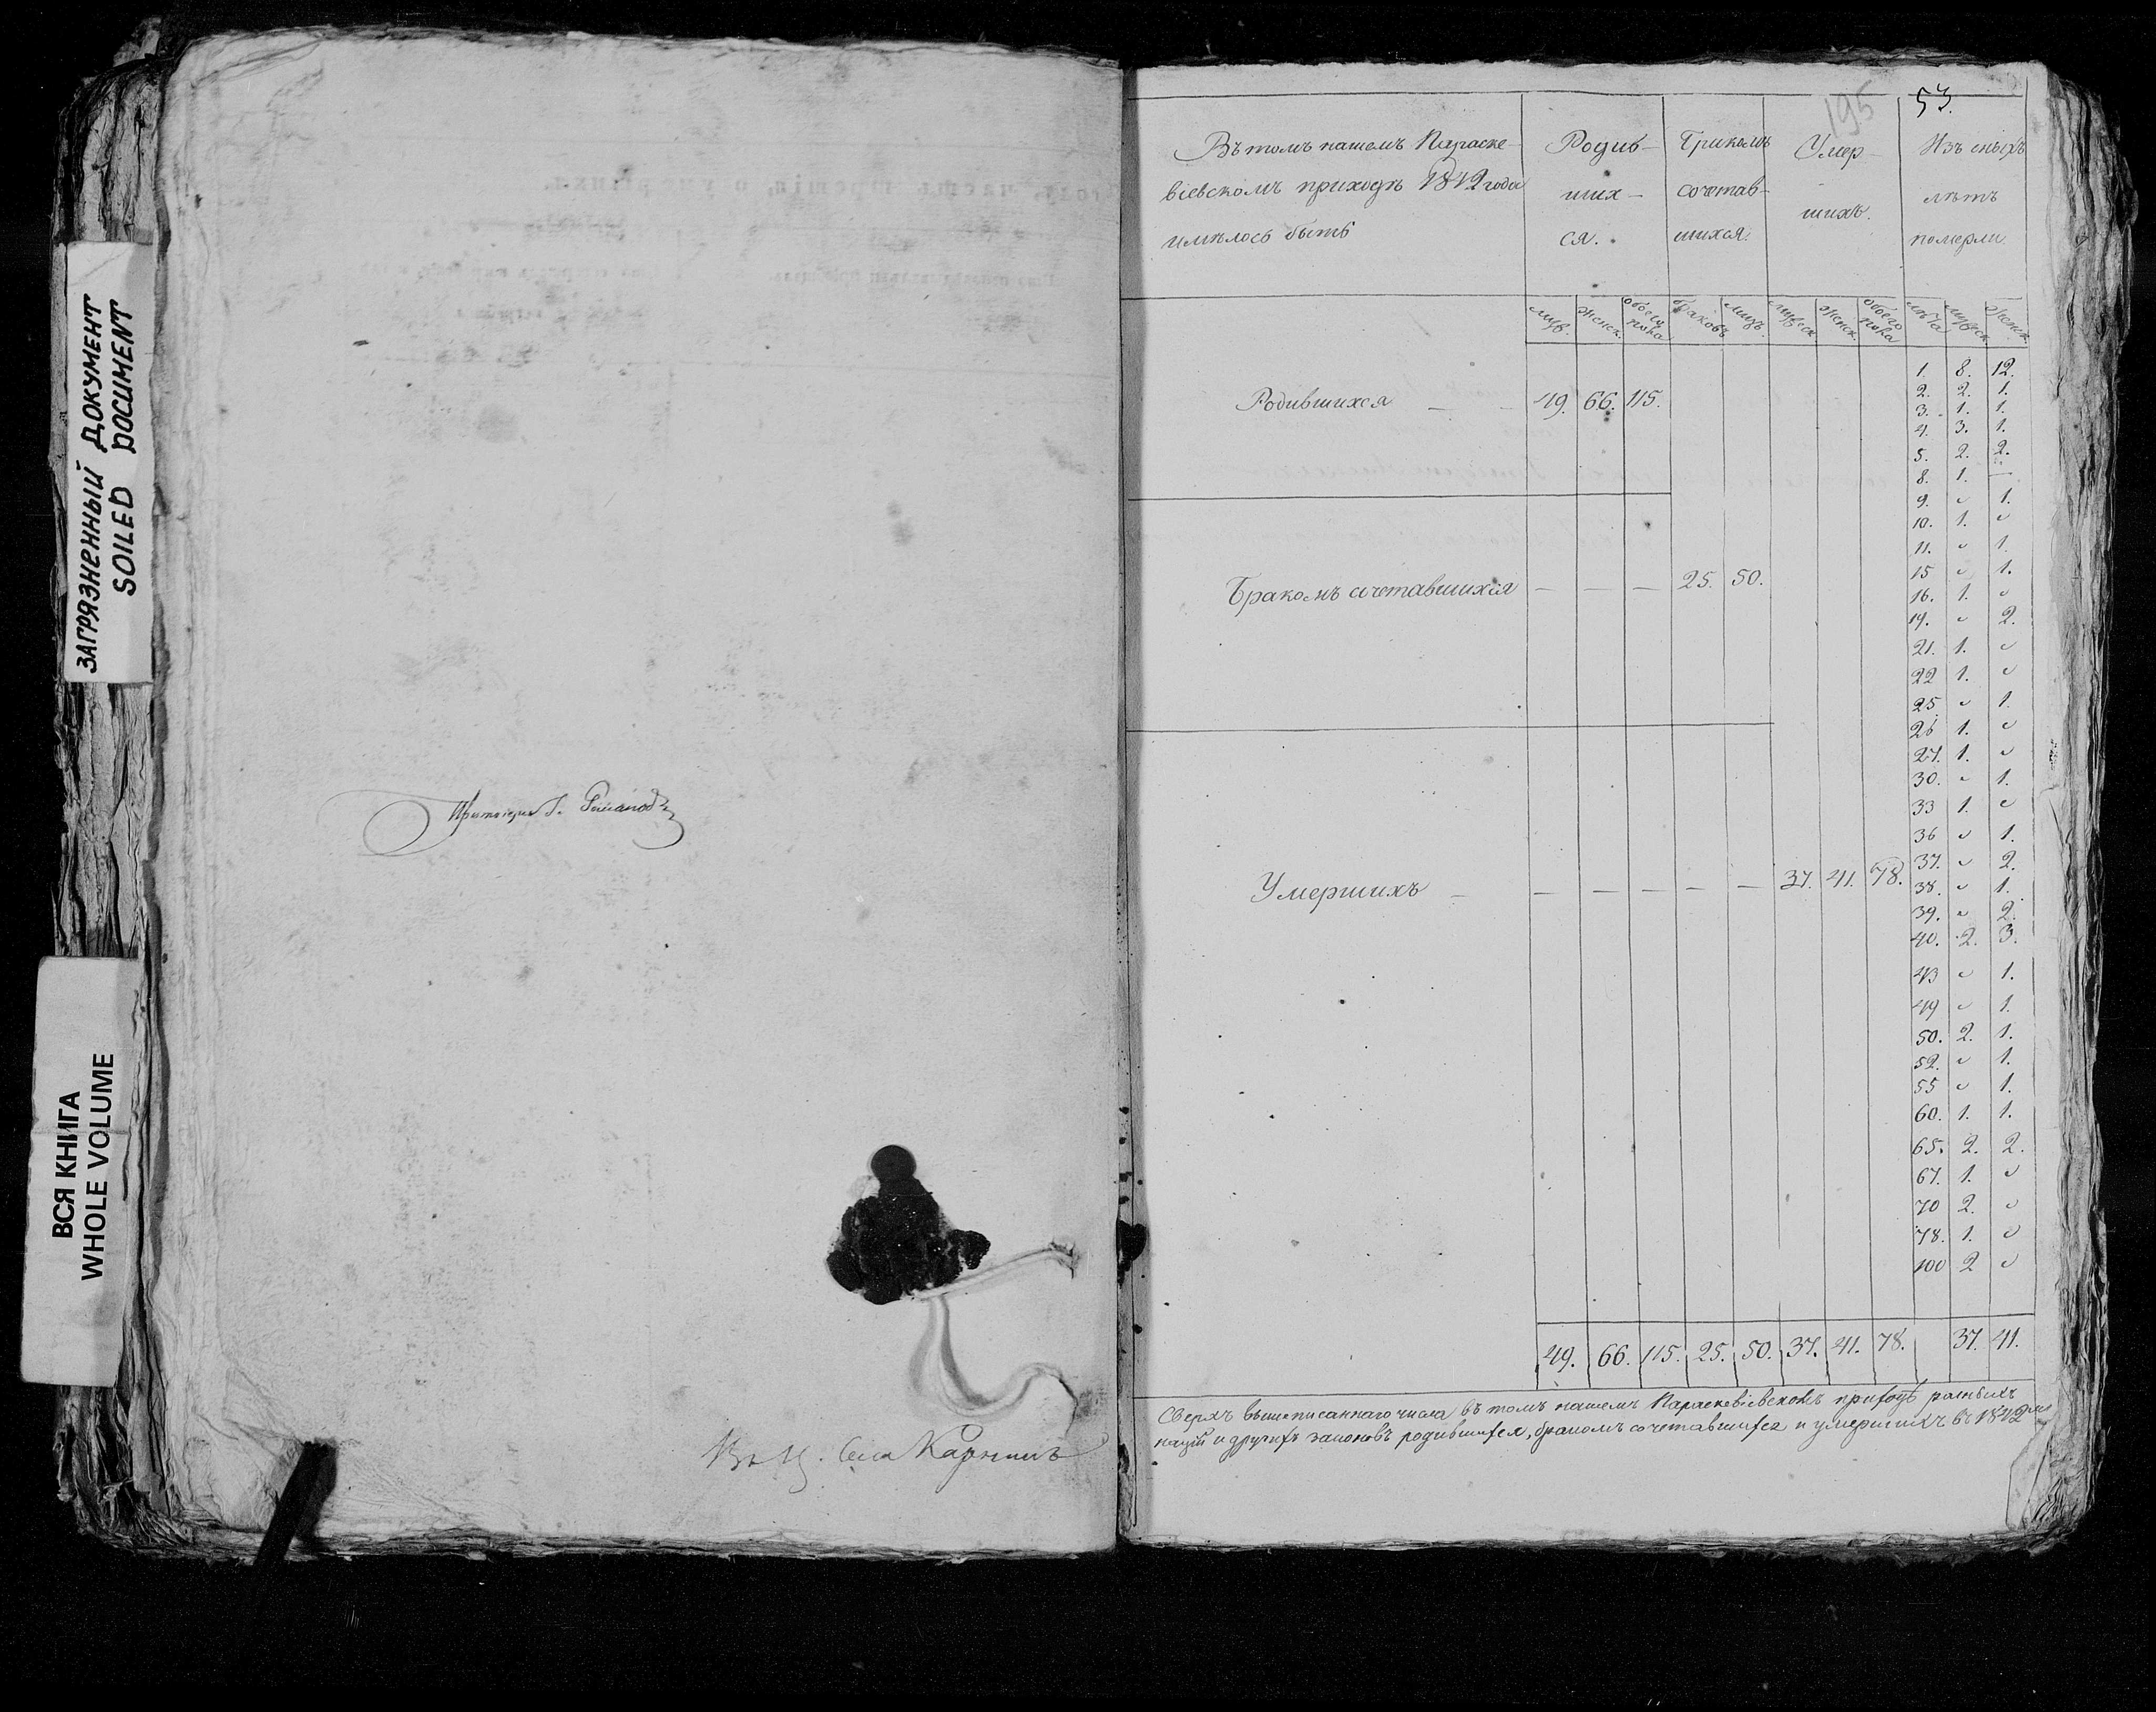 ЗАГРЯЗНЕННЫЙ ДОКУМЕНТ
SOILED DOCUMENT
ВСЯ КНИГА
WHOLE VOLUME
195
53.
Въ томъ нашемъ Параске-
віевскомъ приходѣ 1842 года
имѣлось быть
Родив-
ших-
ся.
Бракомъ
сочетав-
шихся.
Умер-
шихъ.
Изъ оныхъ
лѣтъ
померли
муж. женск. обоего пола браковъ лицъ мужеск женск. обоего пола лѣта мужеск женск.
Родившихся — — 49. 66. 115.
Бракомъ сочетавшихся — — — 25. 50.
Умершихъ — — — — — — 37. 41. 78.
1. 8. 12.
2. 2. 1.
3. 1. 1.
4. 3. 1.
5. 2. 2.
8. 1. —
9. " 1.
10. 1. "
11. " 1.
15 " 1.
16. 1. "
19. " 2.
21. 1. "
22 1. "
25. " 1.
26 1. "
27. 1. "
30. " 1.
33 1. "
36 " 1.
37. " 2.
38. " 1.
39. " 2.
40. 2. 3.
43 " 1.
49 " 1.
50. 2. 1.
52. " 1.
55 " 1.
60. 1. 1.
65. 2. 2.
67. 1. "
70 2. "
78. 1. "
100 2 "
49. 66. 115. 25. 50. 37. 41. 78. 37. 41.
Сверхъ вышеписаннаго числа въ томъ нашемъ Параскевіевскомъ приходѣ разныхъ
націй и другихъ законовъ родившихся, бракомъ сочетавшихся и умершихъ въ 1842мъ